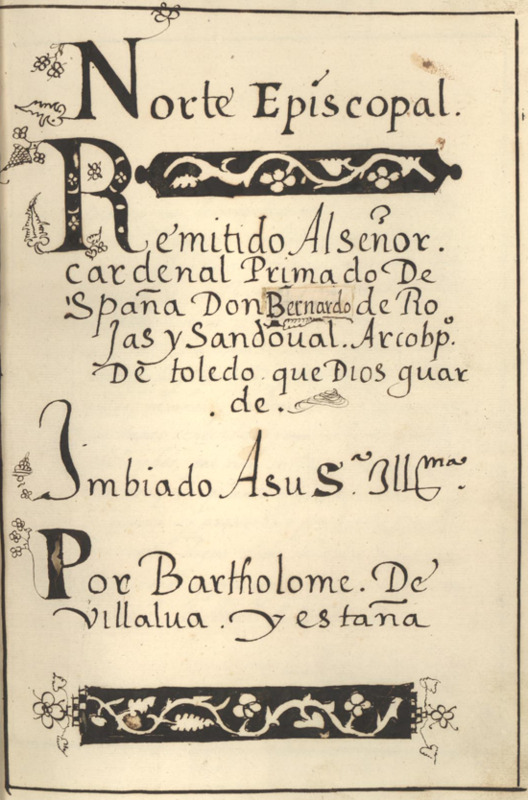 Norte Episcopal.
Remitido Al señor.
cardenal Primado De
Spaña Don Bernardo de Ro
Jas y Sandoual. Arcobpº.
De toledo. que Dios guar
.de.
Imbiado Asu S.ª Illma.
Por Bartholome. De
Villalua. y estaña